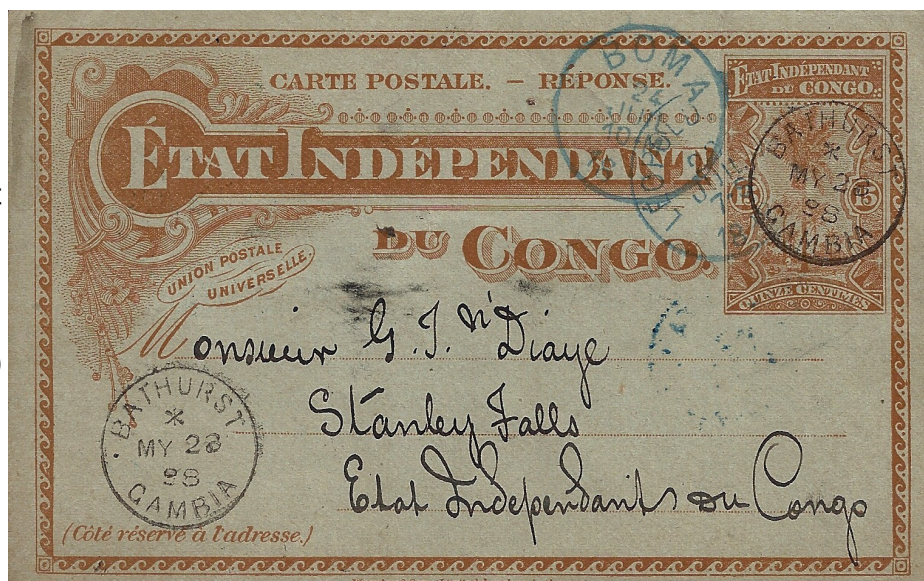 CARTE POSTALE. — RÉPONSE.
ÉTAT INDÉPENDANT
DU CONGO.
UNION POSTALE
UNIVERSELLE.
ETAT INDÉPENDANT
DU CONGO.
15 15
QUINZE CENTIMES
BOMA
BATHURST
*
MY 28
98
GAMBIA
Monsieur G. J. N'Diaye
Stanley Falls
Etat Independants du Congo
BATHURST
*
MY 28
98
GAMBIA
(Côté réservé à l'adresse.)